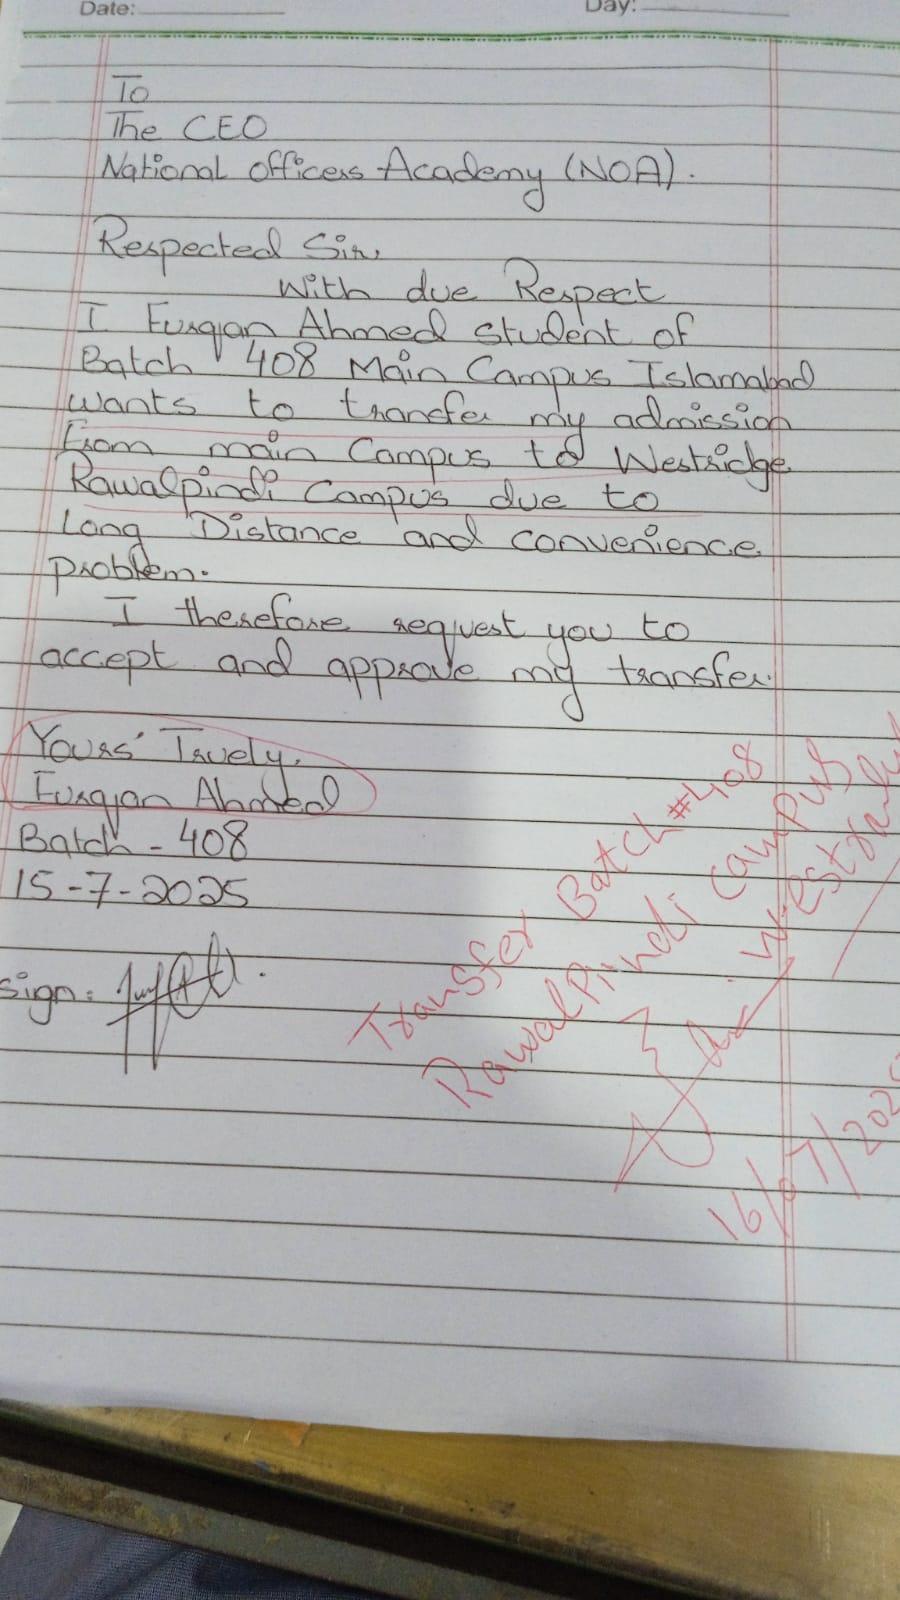 Date:
Day:
To
The CEO
National officers Academy (NOA).
Respected Sir,
With due Respect
I Furqan Ahmed student of
Batch 408 Main Campus Islamabad
wants to transfer my admission
From main Campus to Westridge
Rawalpindi Campus due to
Long Distance and convenience
problem.
I therefore request you to
accept and approve my transfer.
Yours' Truely,
Furqan Ahmed
Batch - 408
15-7-2025
Sign:
Transfer Batch #408
RawalPindi campus
16/07/202